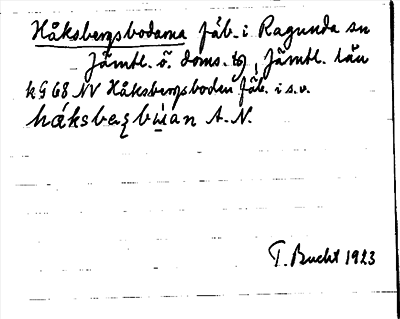 Håksbergsbodarna fäb. i Ragunda sn
Jämtl. ö. doms. tg, Jämtl. län
k G 68 NV Håksbergsboden fäb. i s.v.
håksbærgbùan A.N.
T. Bucht 1923